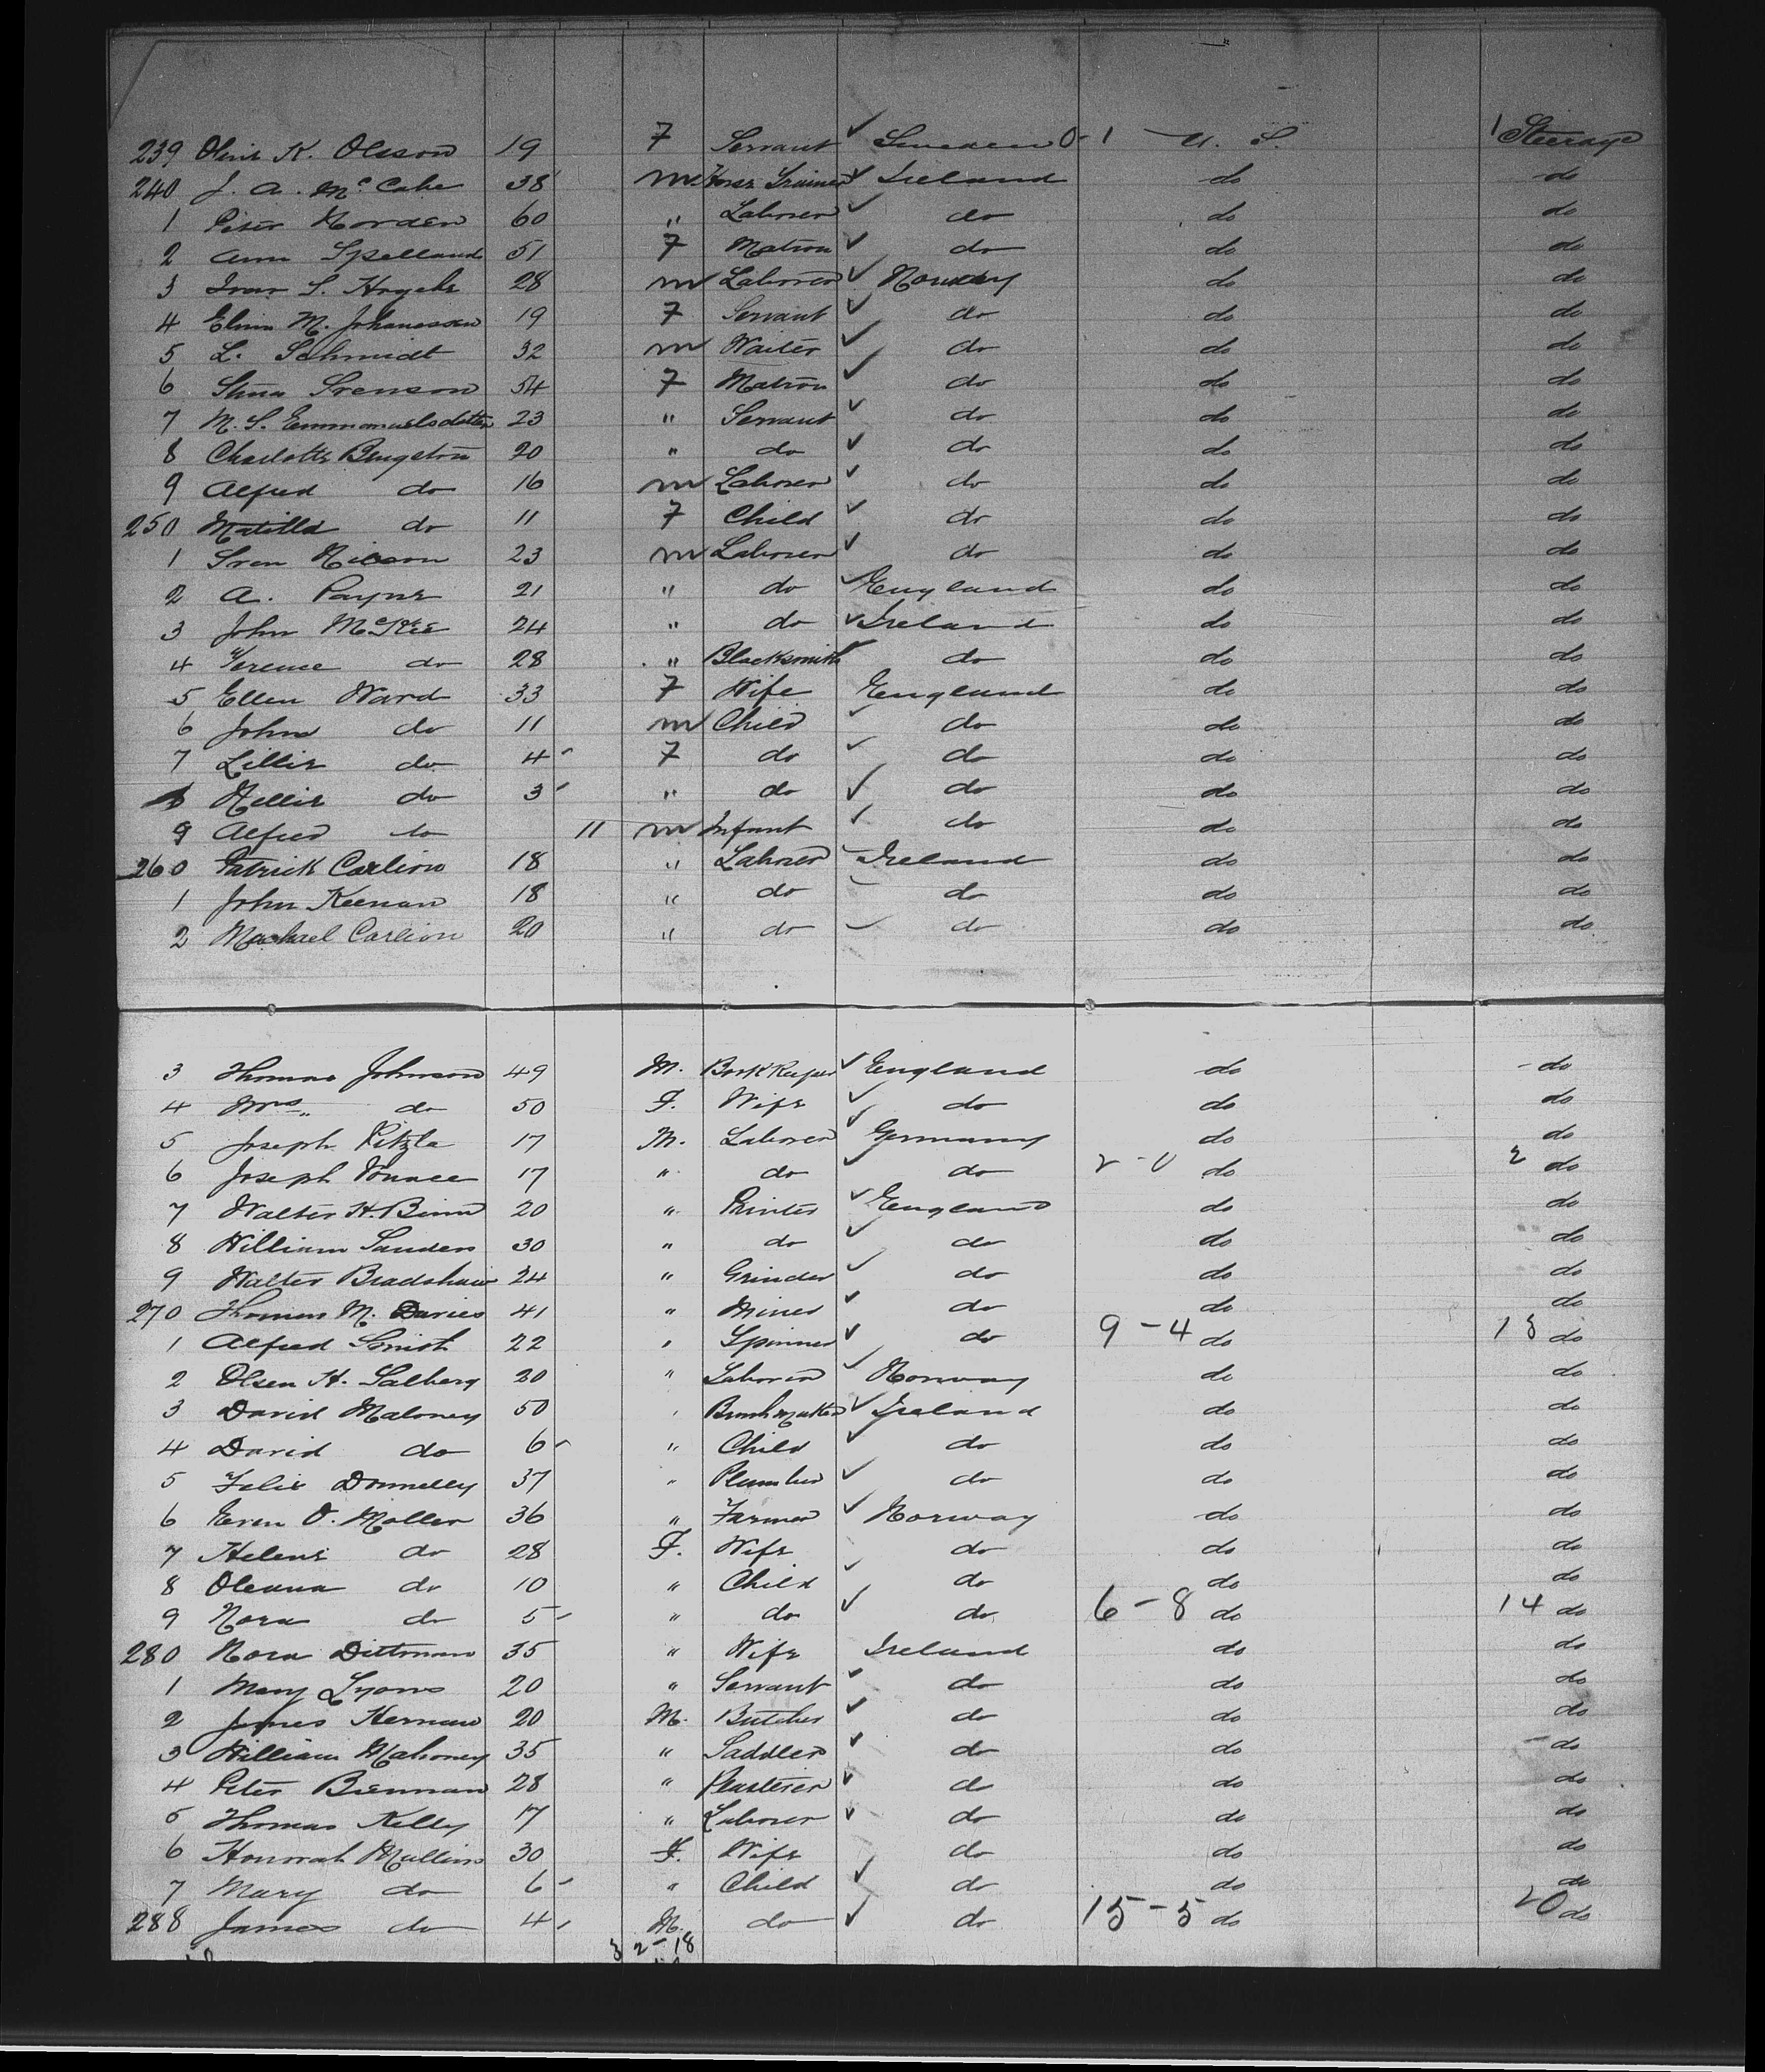 239 Olivia K. Olsson 19 F Servant ✓ Sweden 0-1 U. S. 1 Steerage
240 J. A. McCabe 38 m Horse Trainer ✓ Ireland do do
1 Peter Horden 60 " Laborer ✓ do do do
2 Ann Spelland 51 F Matron ✓ do do do
3 Ivar S. 28 m Laborer ✓ Norway do do
4 Elina M. Johanessen 19 F Servant ✓ do do do
5 L. Schmidt 32 m Waiter ✓ do do do
6 Stina Svenson 54 F Matron ✓ do do do
7 M. S. Emmanuelsdotter 23 " Servant ✓ do do do
8 Charlotte Bengston 20 " do ✓ do do do
9 Alfred do 16 m Laborer ✓ do do do
250 Matilda do 11 F Child ✓ do do do
1 Sven Nilsson 23 m Laborer ✓ do do do
2 A. Payne 21 " do ✓ England do do
3 John McKee 24 " do ✓ Ireland do do
4 Terence do 28 " Blacksmith ✓ do do do
5 Ellen Ward 33 F Wife England do do
6 John do 11 m Child ✓ do do do
7 Lillie do 4 F do ✓ do do do
8 Nellie do 3 " do ✓ do do do
9 Alfred do 11 m Infant ✓ do do do
260 Patrick Carlion 18 " Laborer Ireland do do
1 John Keenan 18 " do do do do
2 Michael Carlion 20 " do do do do
3 Thomas Johnson 49 M. Book Keeper ✓ England do do
4 Mrs. do 50 F. Wife ✓ do do do
5 Joseph Pitzla 17 M. Laborer ✓ Germany do do
6 Joseph 17 " do ✓ do 2-0 do 2 do
7 Walter H. Binn 20 " Printer ✓ England do do
8 William Sanders 30 " do ✓ do do do
9 Walter Bradshaw 24 " Grinder ✓ do do do
270 Thomas M. Davies 41 " Miner ✓ do do do
1 Alfred Smith 22 " Spinner ✓ do 9-4 do 13 do
2 Olsen H. Salberg 20 " Laborer ✓ Norway do do
3 David Maloney 50 " Brushmaker ✓ Ireland do do
4 David do 6 " Child ✓ do do do
5 Felix Donnelly 37 " Plumber ✓ do do do
6 Even O. Moller 36 " Farmer ✓ Norway do do
7 Helene do 28 F. Wife do do do
8 Oleana do 10 " Child ✓ do do do
9 Nora do 5 " do ✓ do 6-8 do 14 do
280 Nora Dittman 35 " Wife Ireland do do
1 Mary Lyons 20 " Servant ✓ do do do
2 James Kernan 20 M. Butcher ✓ do do do
3 William Mahoney 35 " Saddler ✓ do do do
4 Peter Brennan 28 " Plasterer ✓ do do do
5 Thomas Kelly 17 " Laborer ✓ do do do
6 Honorah Mullins 30 F. Wife do do do
7 Mary do 6 " Child ✓ do do do
288 James do 4 M. do ✓ do 15-5 do 20 do
3 2-18